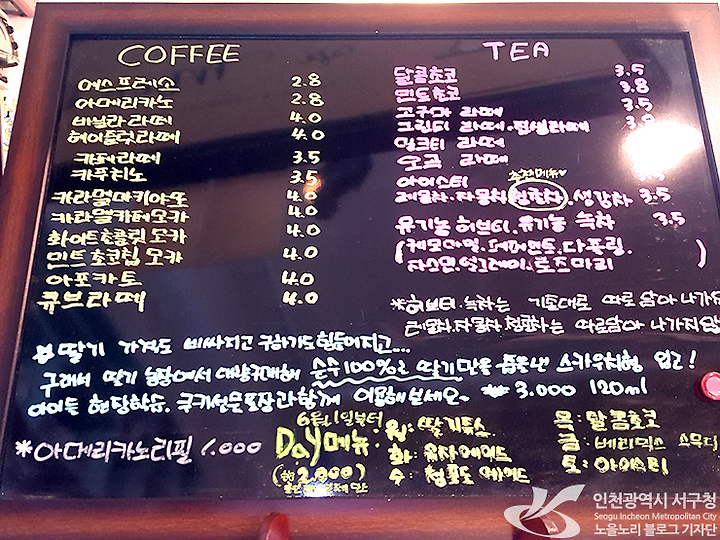 COFFEE
에스프레소 2.8
아메리카노 2.8
바닐라라떼 4.0
헤이즐럿라떼 4.0
카페라떼 3.5
카푸치노 3.5
카라멜마키아또 4.0
카라멜카페모카 4.0
화이트초콜릿 모카 4.0
민트초코칩 모카 4.0
아포카토 4.0
큐브라떼 4.0
TEA
달콤초코 3.5
민트초코 3.8
고구마 라떼 3.5
그린티 라떼. 라떼
밍크티 라떼
오곡 라떼
추천메뉴♥
아이스티
레몬차.자몽차.청포도차.생강차 3.5
유기농 허브티.유기농 녹차 3.5
(케모마일.페퍼민트.다즐링.
쟈스민.얼그레이.로즈마리)
*허브티.녹차는 기호대로 따로 담아 나가
레몬차.자몽차.청포도차는 따로담아 나가지않
딸기 가격도 비싸지고 구하기도 힘들어지고...
그래서 딸기 농장에서 대량구매해 순수100%로 딸기만을 즙낸 입고!
아이들 쿠키선물포장과함께 이용해보세요~ 3.000 120ml
*아메리카노리필 1.000
6월1일부터
Day메뉴
2.000
월: 딸기쥬스
화: 유자에이드
수: 청포도 에이드
목: 달콤초코
금: 베리믹스 스무디
토: 아이스티
인천광역시 서구청
Seogu Incheon Metropolitan City
노을노리 블로그 기자단